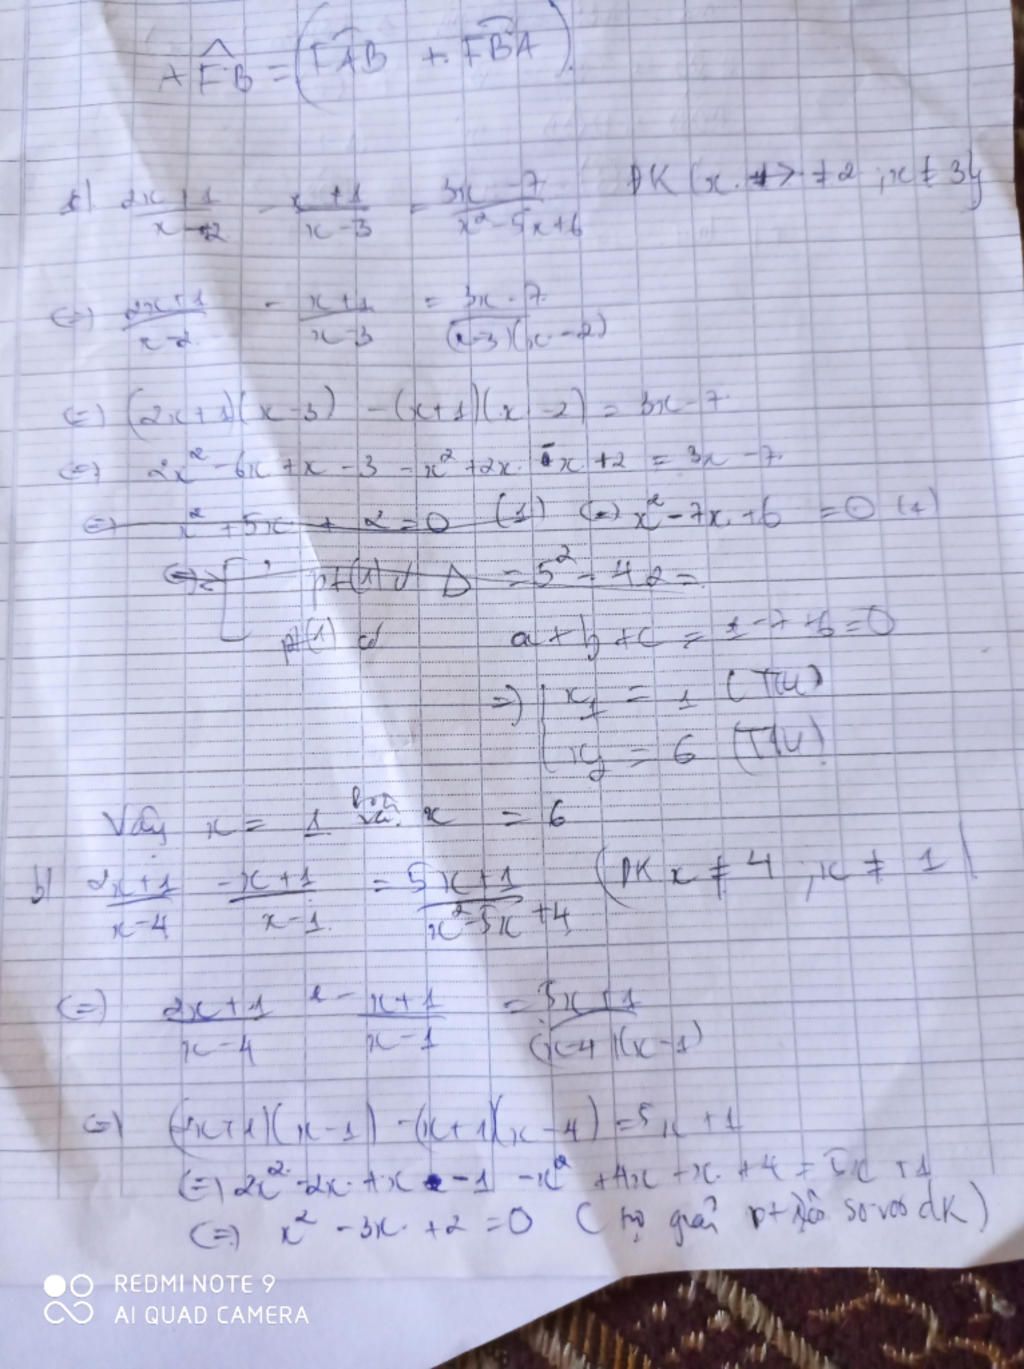 AFB = (FAB + FBA)
a) (2x+1)/(x-2) - (x+1)/(x-3) = (3x-7)/(x²-5x+6) ĐK (x ≠ 2 ; x ≠ 3)
(=) (2x+1)/(x-2) - (x+1)/(x-3) = (3x-7)/((x-3)(x-2))
(=) (2x+1)(x-3) - (x+1)(x-2) = 3x-7
(=) 2x²-6x+x-3-x²+2x-x+2 = 3x-7
(=) x²+5x+2=0 (1) (=) x²-7x+6 = 0 (1)
pt(1) có Δ = 5²-4.2=
pt(1) có a+b+c = 1-7+6=0
=) x₁ = 1 (T/M)
x₂ = 6 (T/M)
Vậy x = 1 hoặc x = 6
b) (2x+1)/(x-4) - (x+1)/(x-1) = (5x+1)/(x²-5x+4) (ĐK x ≠ 4 ; x ≠ 1)
(=) (2x+1)/(x-4) - (x+1)/(x-1) = (5x+1)/((x-4)(x-1))
(=) (2x+1)(x-1) - (x+1)(x-4) = 5x+1
(=) 2x²-2x+x-1-x²+4x-x+4 = 5x+1
(=) x²-3x+2=0 (tự giải pt so với đk)
REDMI NOTE 9
AI QUAD CAMERA